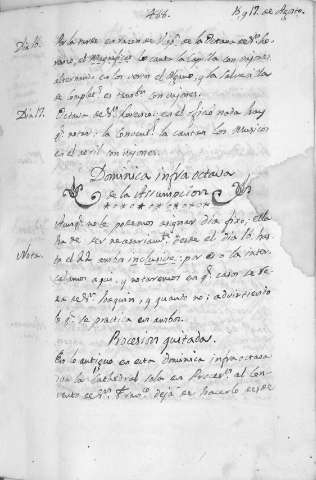 466. 16 y 17. de Agosto.
Dia 16. Por la tarde en razon de Visp.s de la Octava de S.n Lo-
renzo, el Magnificat lo canta la Capilla con violones
alternando en los versos el Organo, y la Salve
de Complet.s es tamb.n con violones.
Dia 17. Octava de S.n Lorenzo: en el oficio nada hay
q.e notar: la Convent.l la cantan los Musicos
en el atril con violones.
Dominica infraoctava
de la Assumpcion
Aunq.e no le podemos asignar dia fixo; ella
ha de ser necesariam.te desde el dia 16 has-
Nota. ta el 22 ambos inclusive: por eso la inter-
calamos aqui, y notaremos en q.e casos se re-
za de S.n Joaquin, y quando no: advirtiendo
lo q.e se practica en ambos.
Procesion quitada.
En lo antiguo en esta Dominica infraoctava
iba la Cathedral sola en Proces.n al Con-
vento de S.n Fran.co dejó de hacerlo desde